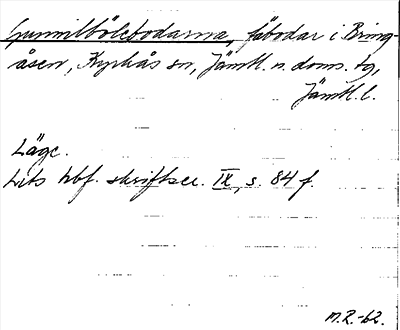 Gunnilbölebodarna, fäbodar i Bring-
åsen, Kyrkås sn, Jämtl. n. doms. tg,
Jämtl. l.
Läge.
Lits hbf. skriftser. IX, s. 84 f.
M.R.-62.